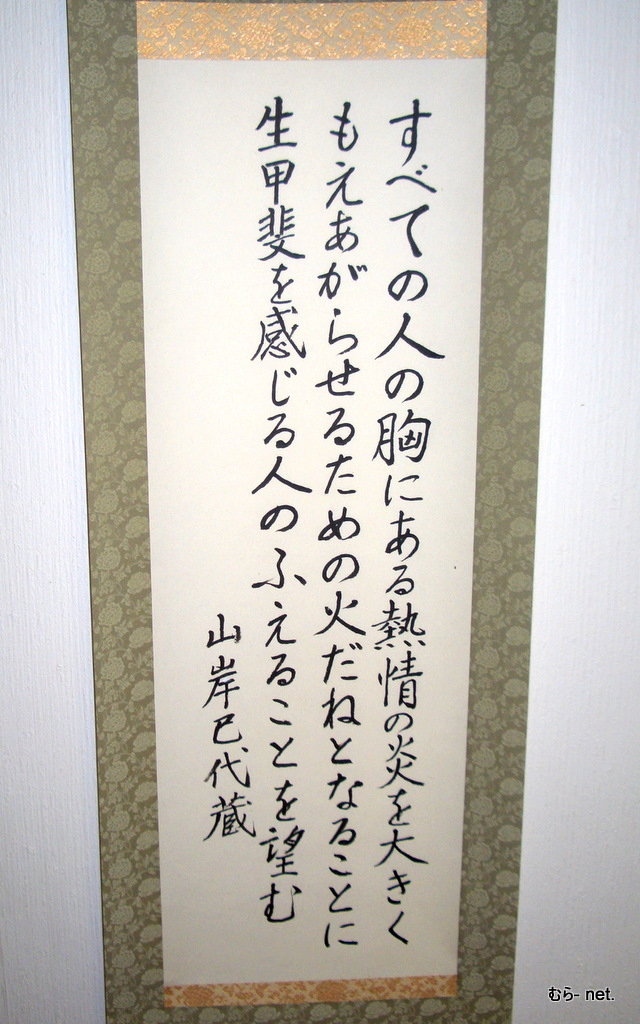 すべての人の胸にある熱情の炎を大きく
もえあがらせるための火だねとなることに
生甲斐を感じる人のふえることを望む
山岸巳代蔵
むら- net.